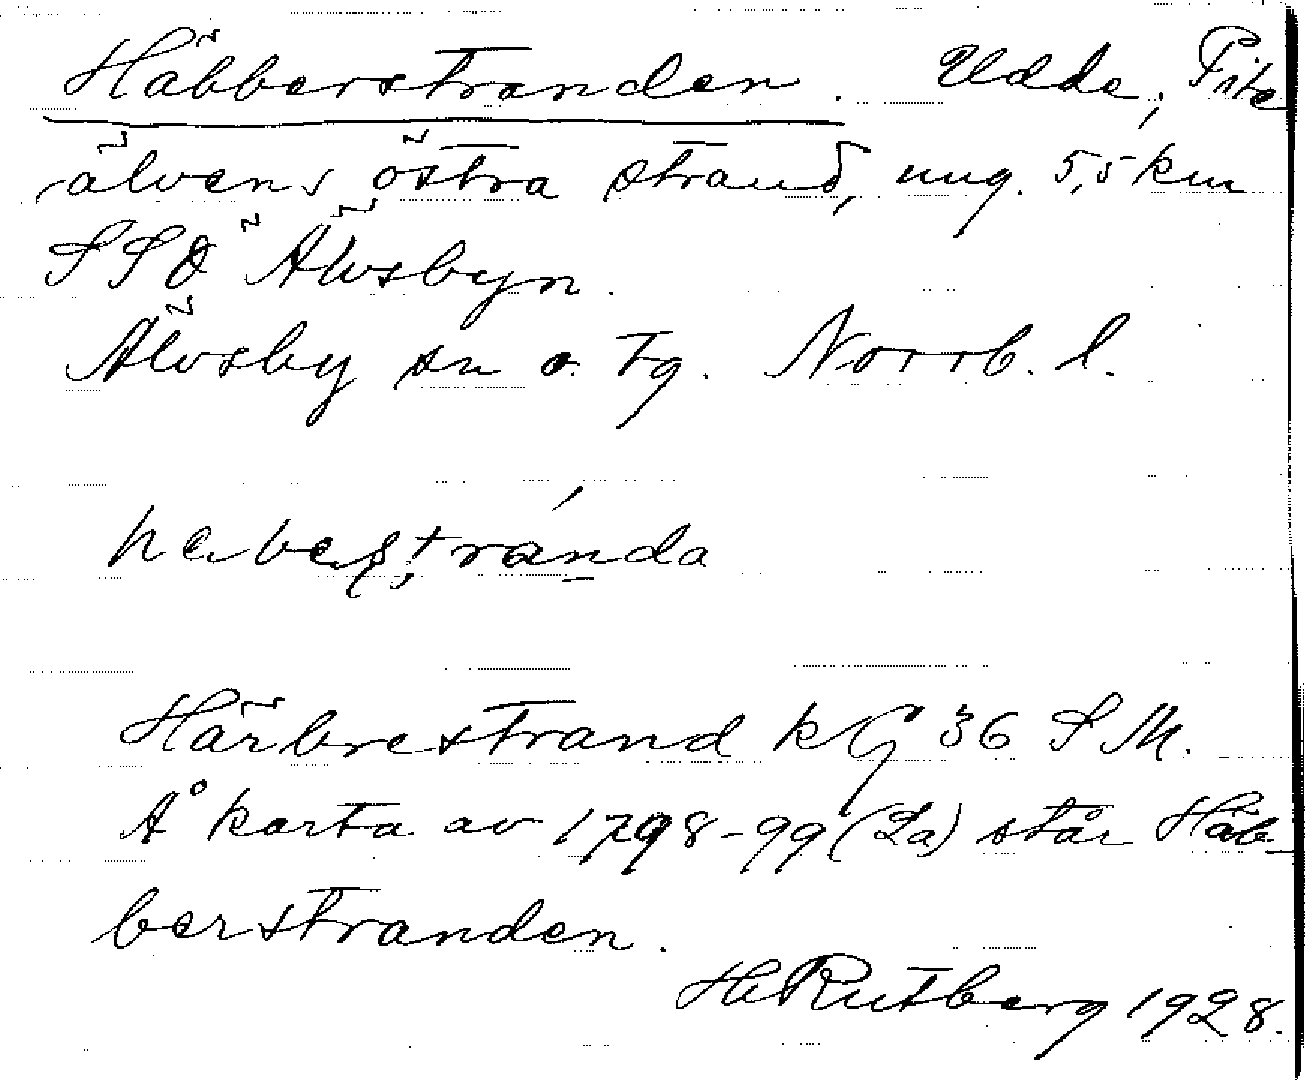 Häbberstranden. Udde, Pite
älvens östra strand, ung. 5,5 km
SSÖ Älvsbyn.
Älvsby sn o. tg. Norrb. l.
habestránda
Härbrestrand kG 36 SM.
Å karta av 1798-99 (La) står Häb-
berstranden.
H Rutberg 1928.